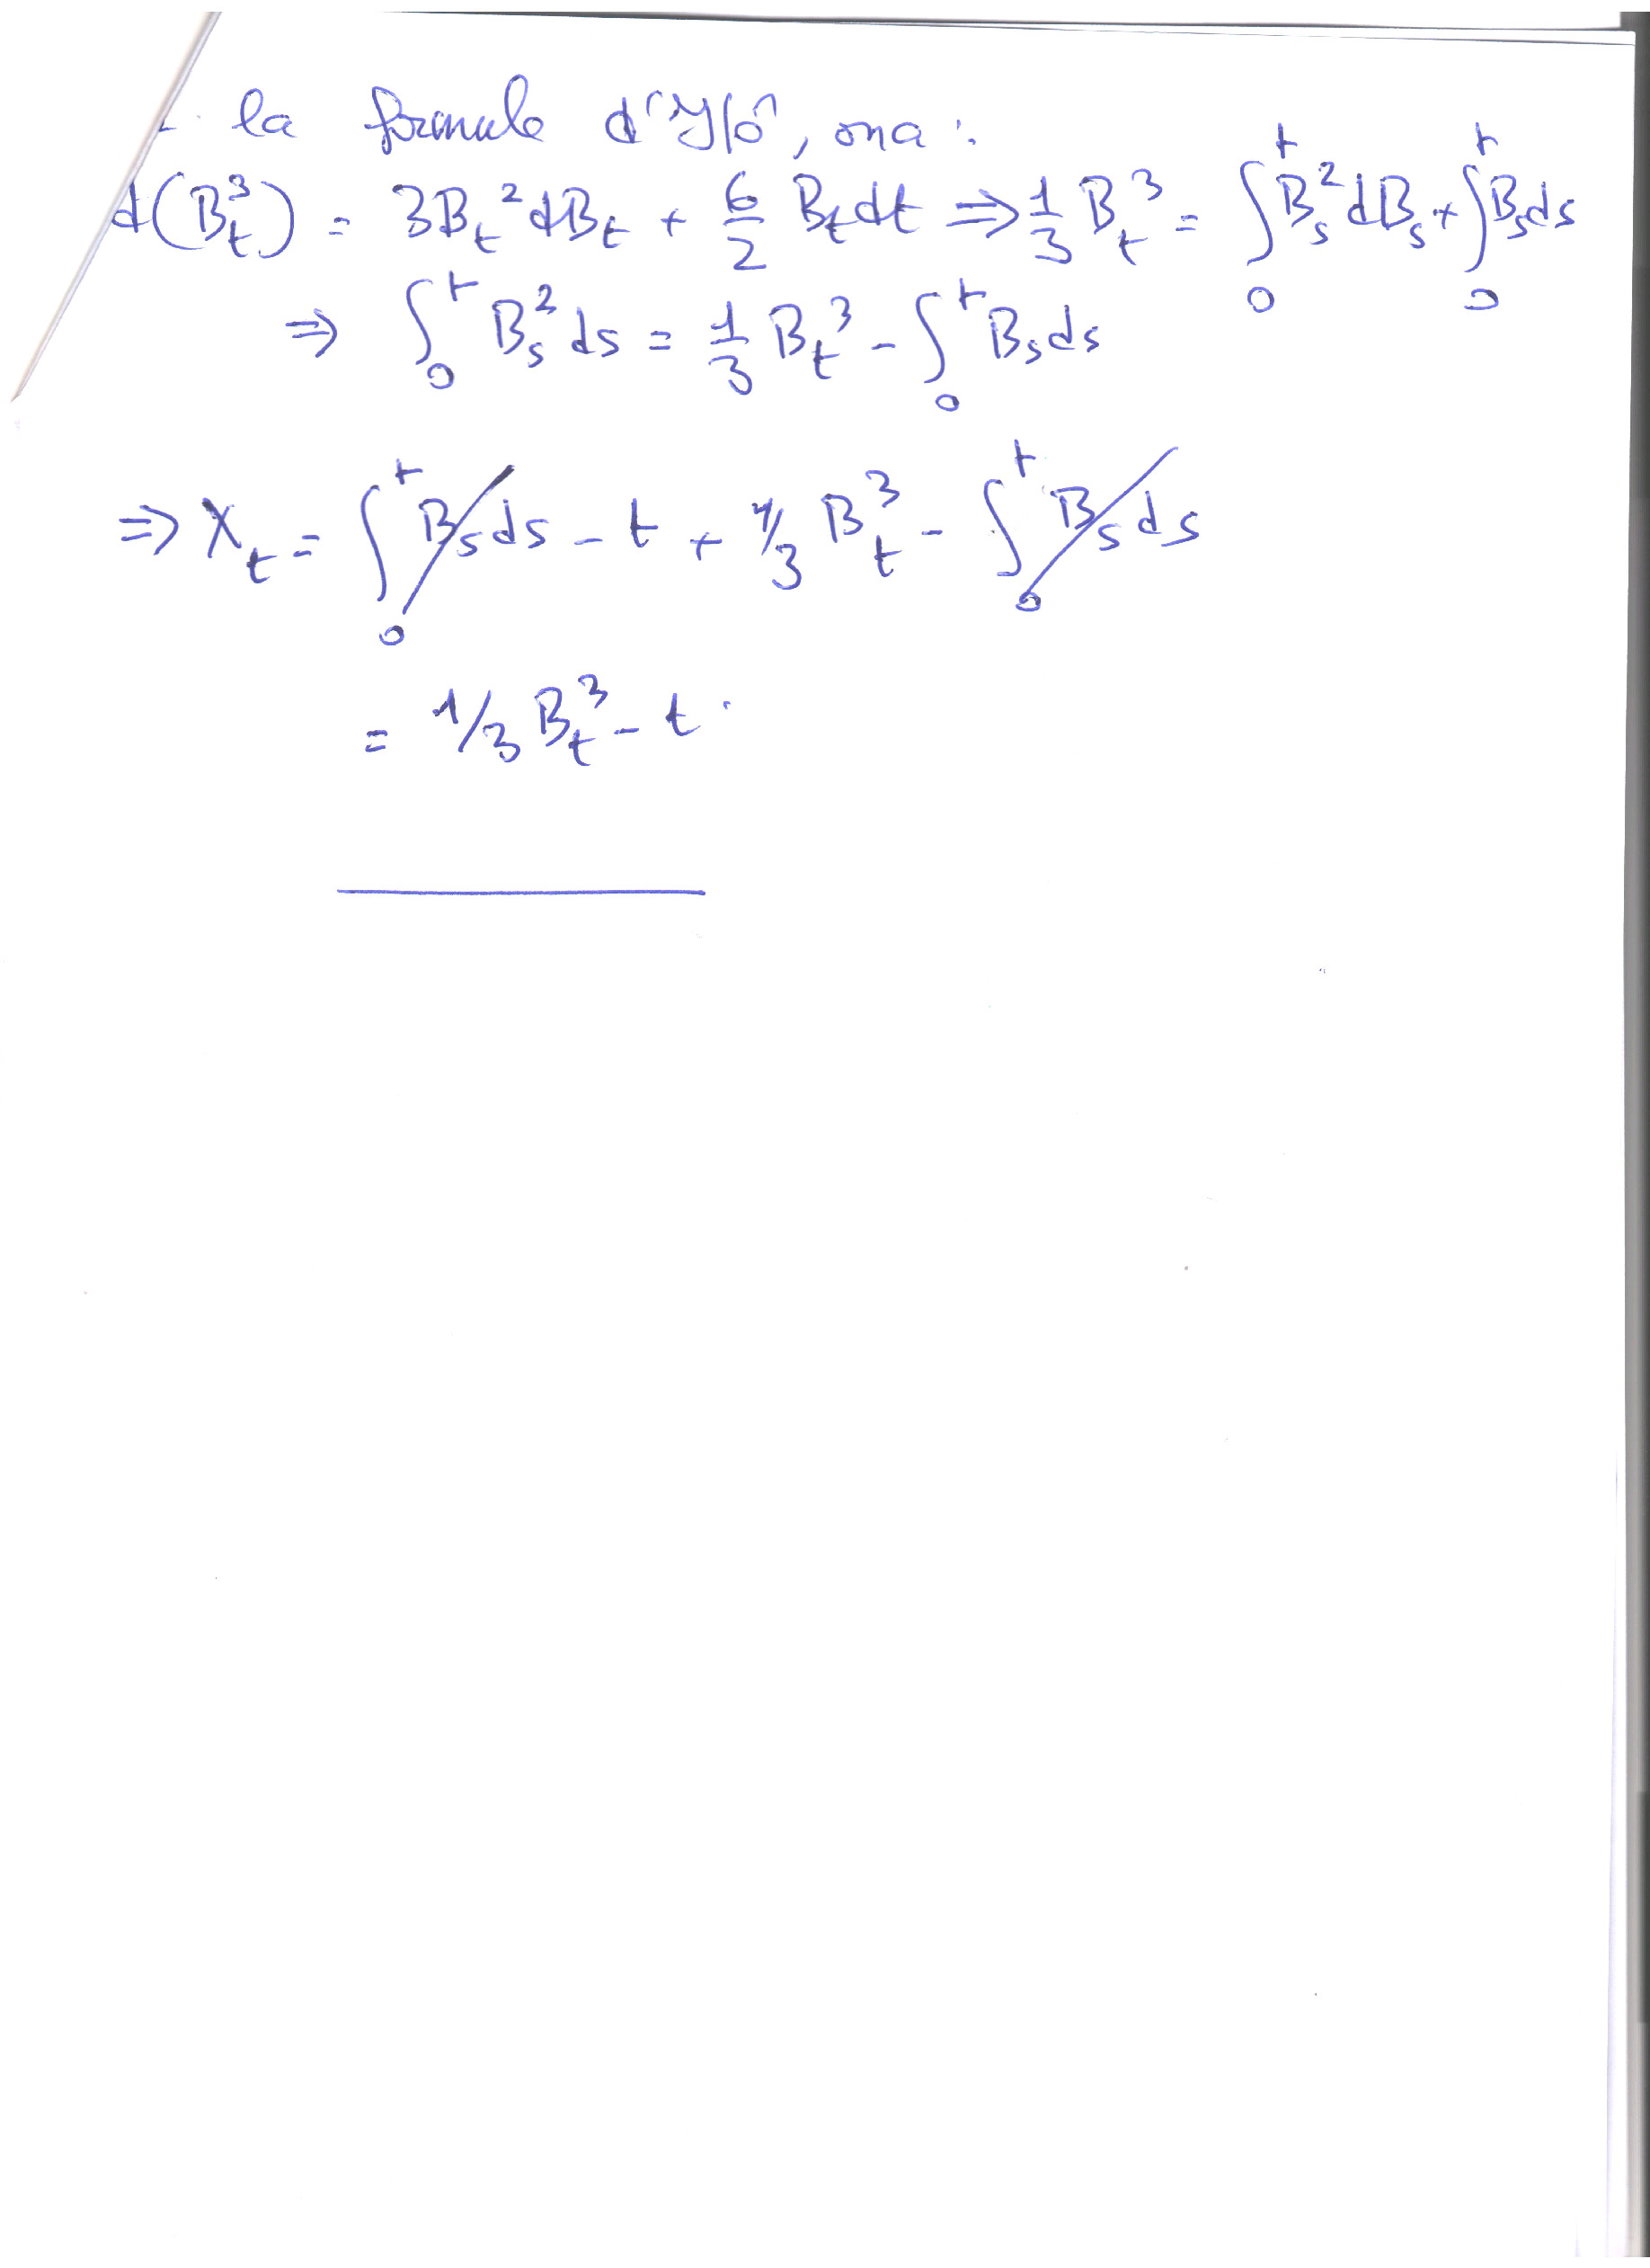 la formule d'Itô, on a :
d(B_t^3) = 3B_t^2 dB_t + 6/2 B_t dt ⇒ 1/3 B_t^3 = ∫_0^t B_s^2 dB_s + ∫_0^t B_s ds
⇒ ∫_0^t B_s^2 ds = 1/3 B_t^3 - ∫_0^t B_s ds
⇒ X_t = ∫_0^t B_s ds - t + 1/3 B_t^3 - ∫_0^t B_s ds
= 1/3 B_t^3 - t.